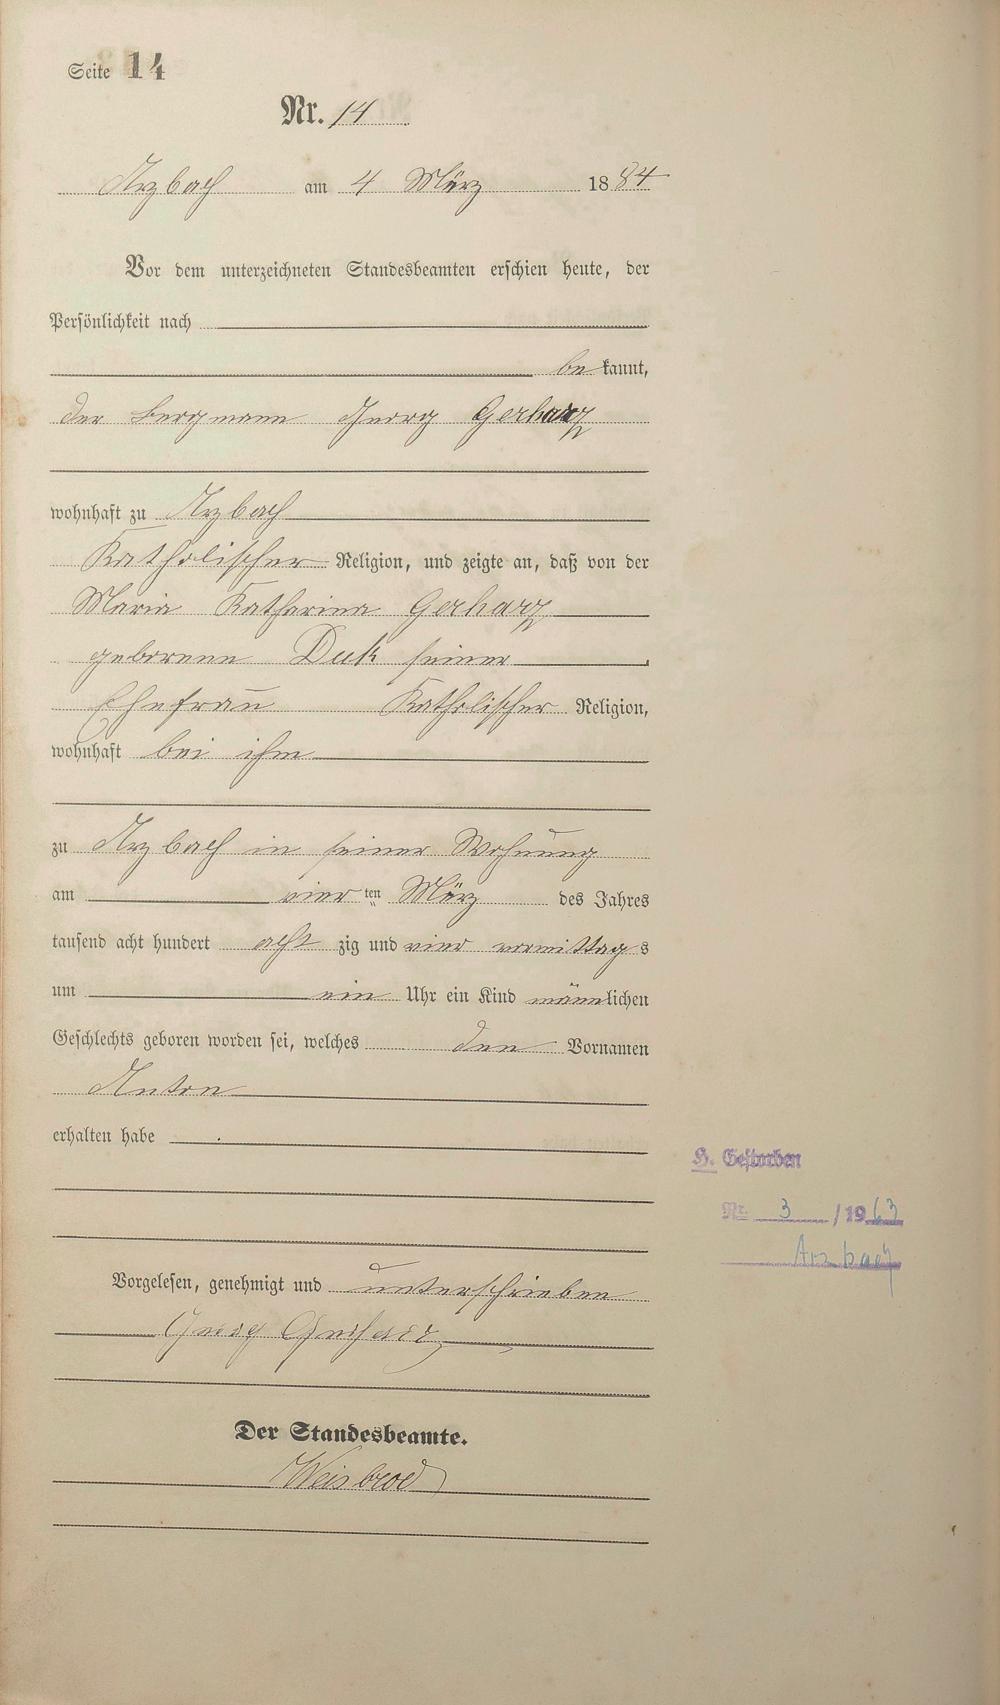 Seite 14
Nr. 14
Arzbach am 4 März 1884
Vor dem unterzeichneten Standesbeamten erschien heute, der
Persönlichkeit nach
bekannt,
der Bergmann Georg Gerharz
wohnhaft zu Arzbach
Katholischer Religion, und zeigte an, daß von der
Maria Katharina Gerharz
geborene Duk seiner
Ehefrau Katholischer Religion,
wohnhaft bei ihm
zu Arzbach in seiner Wohnung
am vierten März des Jahres
tausend acht hundert achtzig und vier vormittags
um ein Uhr ein Kind männlichen
Geschlechts geboren worden sei, welches den Vornamen
Anton
erhalten habe
H. Gestorben
Nr. 3 / 1963
Arzbach
Vorgelesen, genehmigt und unterschrieben
Georg Gerharz
Der Standesbeamte.
Weisbrod